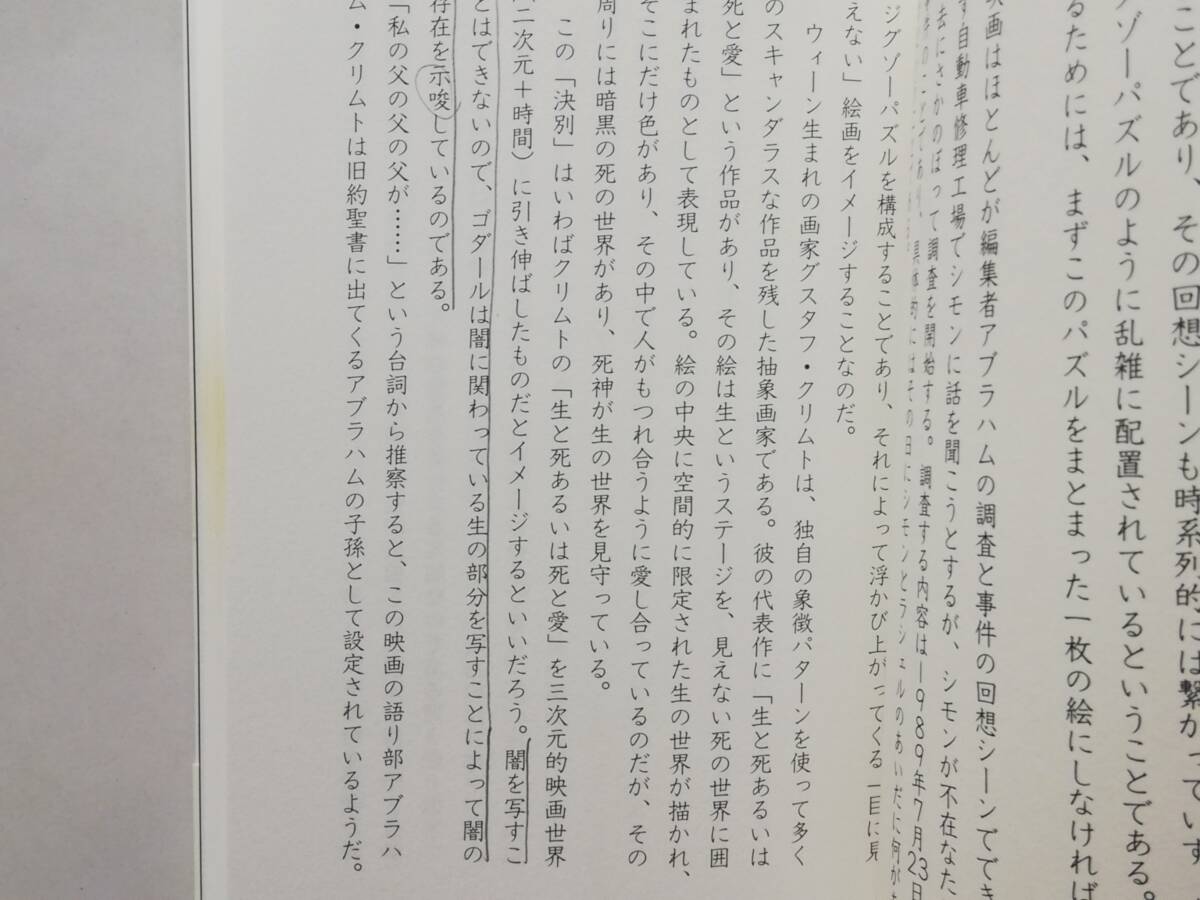 ことであり、その回想シーンも時系列的には繋がっていす
ゾーパズルのように乱雑に配置されているということである。
るためには、まずこのパズルをまとまった一枚の絵にしなければ
映画はほとんどが編集者アブラハムの調査と事件の回想シーンででき
自動車修理工場でシモンに話を聞こうとするが、シモンが不在なた
去にさかのぼって調査を開始する。調査する内容は一989年7月23日
具体的にはその日にシモンとラシェルのあいだに何が
ジグソーパズルを構成することであり、それによって浮かび上がってくる「目に見
えない」絵画をイメージすることなのだ。
ウィーン生まれの画家グスタフ・クリムトは、独自の象徴パターンを使って多く
のスキャンダラスな作品を残した抽象画家である。彼の代表作に「生と死あるいは
死と愛」という作品があり、その絵は生というステージを、見えない死の世界に囲
まれたものとして表現している。絵の中央に空間的に限定された生の世界が描かれ、
そこにだけ色があり、その中で人がもつれ合うように愛し合っているのだが、その
周りには暗黒の死の世界があり、死神が生の世界を見守っている。
この「決別」はいわばクリムトの「生と死あるいは死と愛」を三次元的映画世界
（二次元＋時間）に引き伸ばしたものだとイメージするといいだろう。闇を写すこ
とはできないので、ゴダールは闇に関わっている生の部分を写すことによって闇の
存在を示唆しているのである。
「私の父の父の父が……」という台詞から推察すると、この映画の語り部アブラハ
ム・クリムトは旧約聖書に出てくるアブラハムの子孫として設定されているようだ。